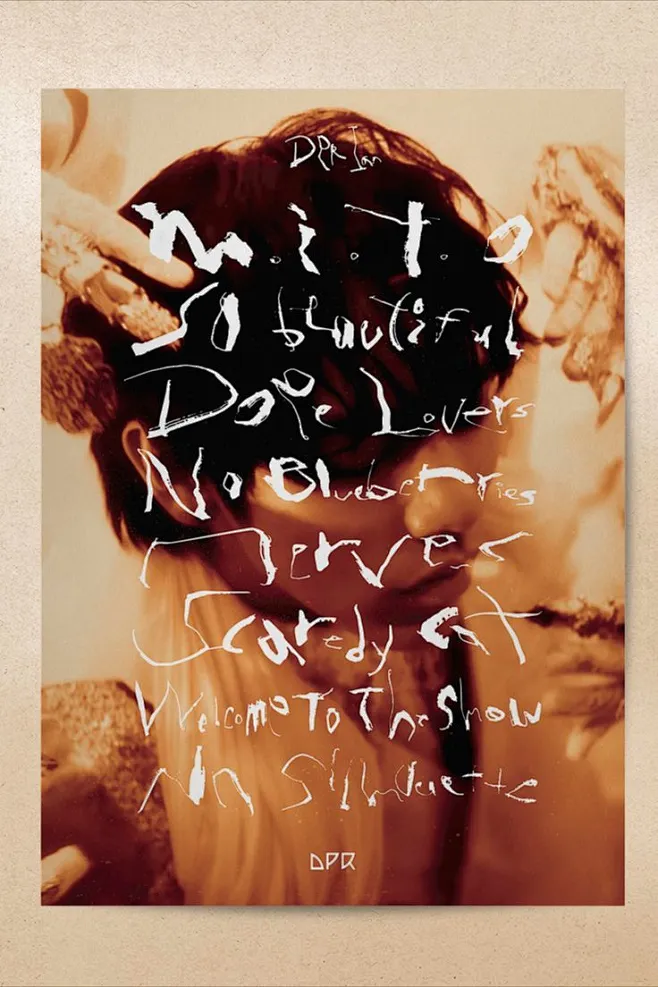 DPR Ian
m.i.t.o
So beautiful
Dope Lovers
No Blueberries
Nerves
Scaredy Cat
Welcome To The Show
Mr Silhouette
DPR